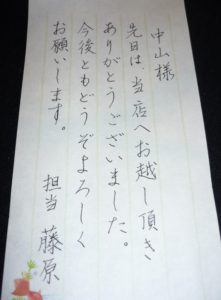 中山様
先日は、当店へお越し頂き
ありがとうございました。
今後ともどうぞよろしく
お願いします。
担当 藤原